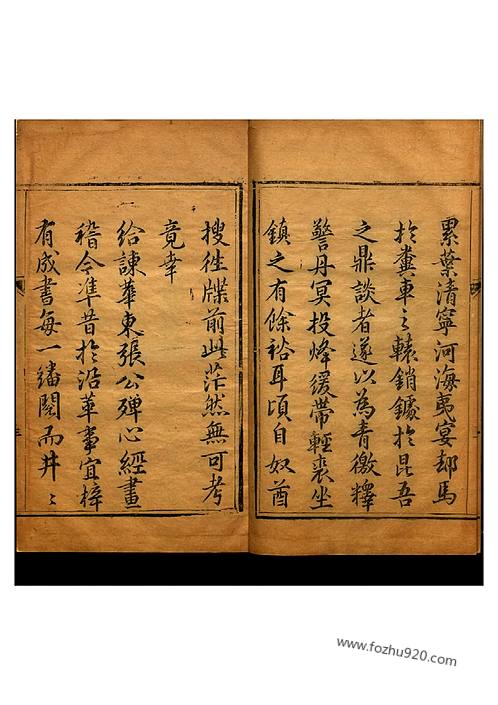 累葉清寧河海夷宴却馬
於糞車之轅銷鐻於昆吾
之鼎談者遂以為青徼釋
警丹冥投烽緩帶輕裘坐
鎮之有餘裕耳頃自奴酋
搜徃牒前此茫然無可考
竟幸
給諫華東張公殫心經畫
稽今準昔於沿革事宜梓
有成書每一繙閱而井〻
www.fozhu920.com